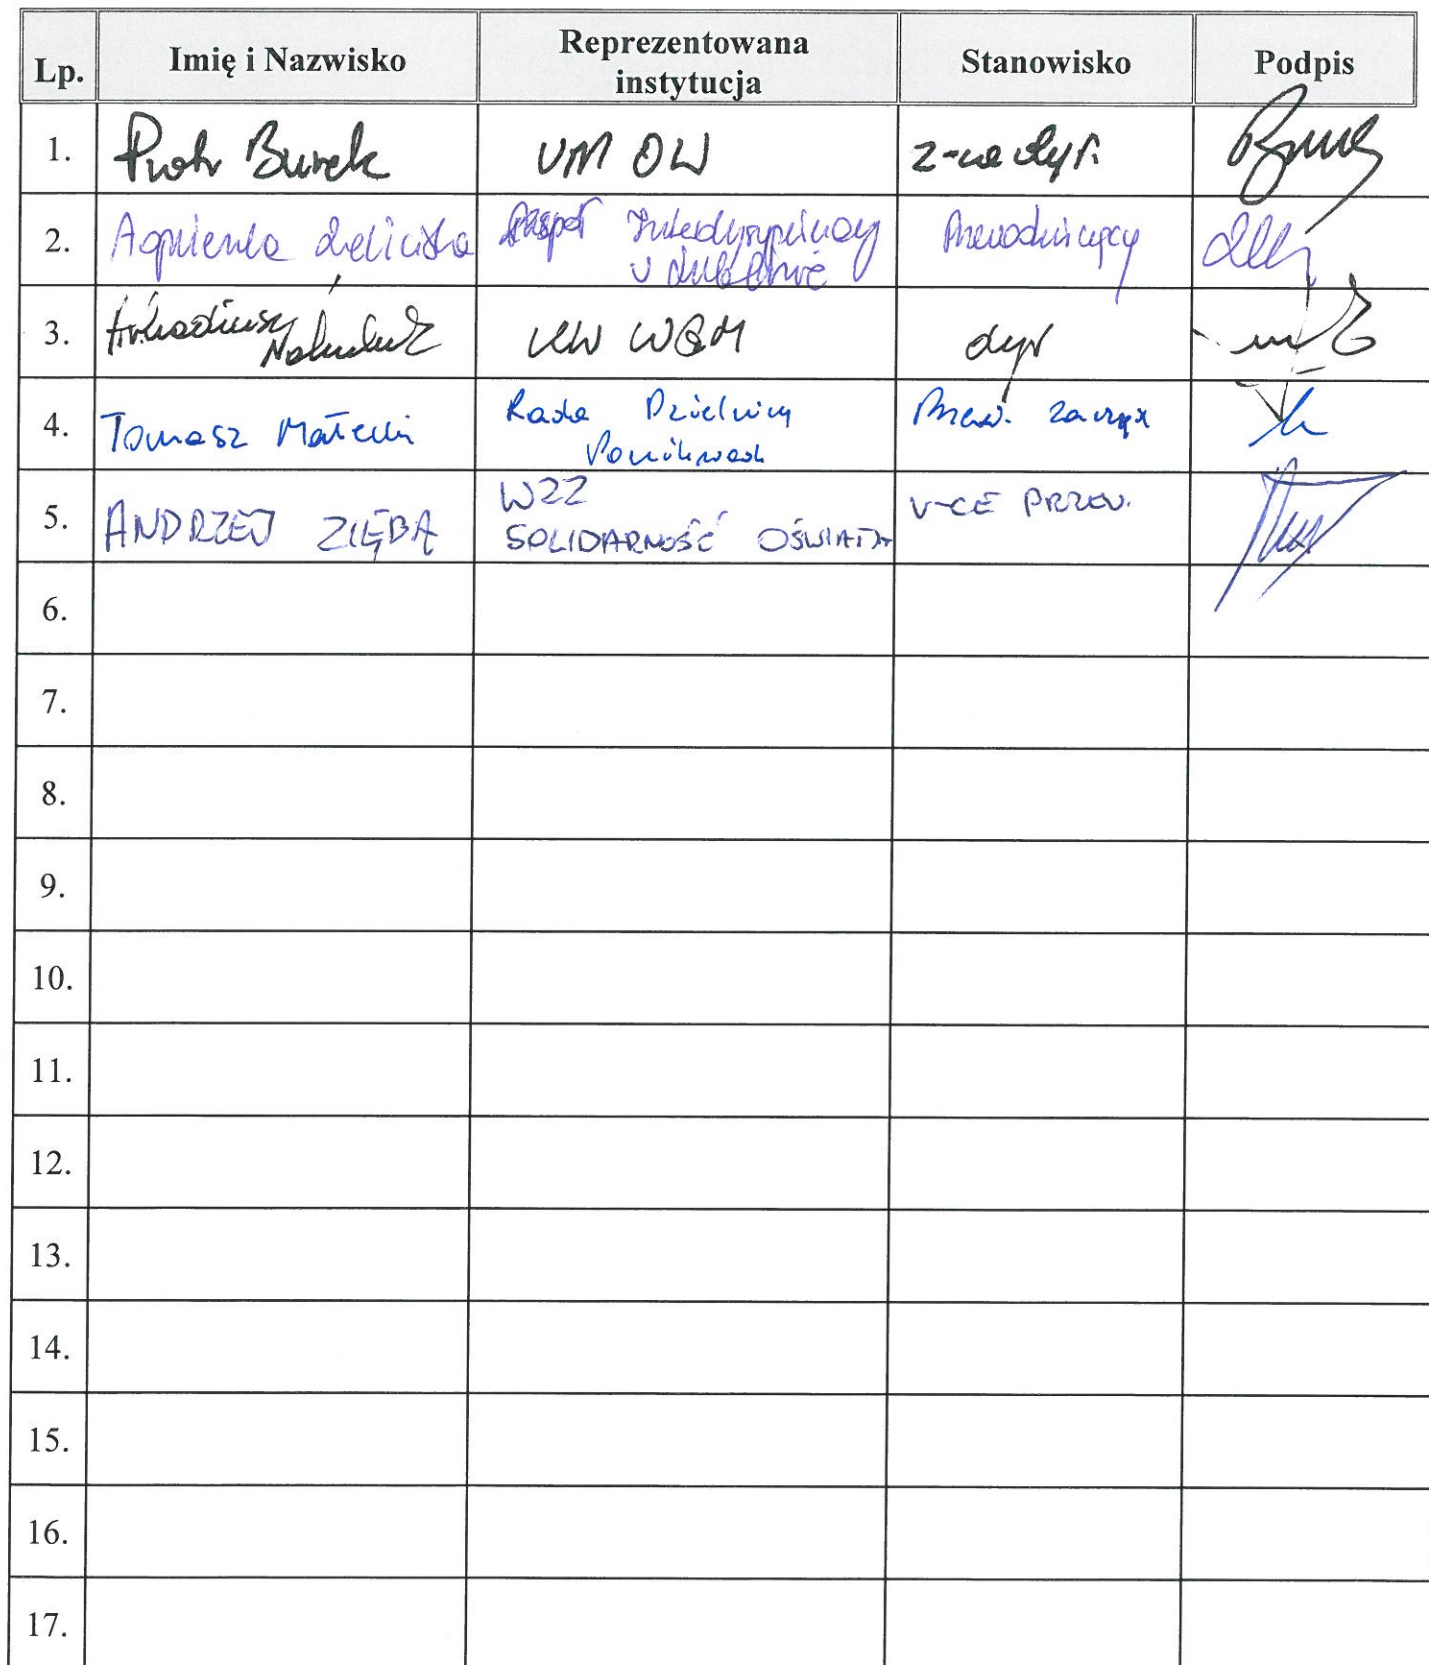 Lp. Imię i Nazwisko Reprezentowana instytucja Stanowisko Podpis
1. Piotr Burek UM OW z-ca dyr.
2. Agnieszka Zespół Interdyscyplinarny w Lublinie Przewodniczący
3. Arkadiusz Nahuluk UW WGM dyr
4. Tomasz Małecki Rada Dzielnicy Ponikwoda Przew. Zarządu
5. ANDRZEJ ZIĘBA WZZ SOLIDARNOŚĆ OŚWIATA V-CE PRZEW.
6.
7.
8.
9.
10.
11.
12.
13.
14.
15.
16.
17.